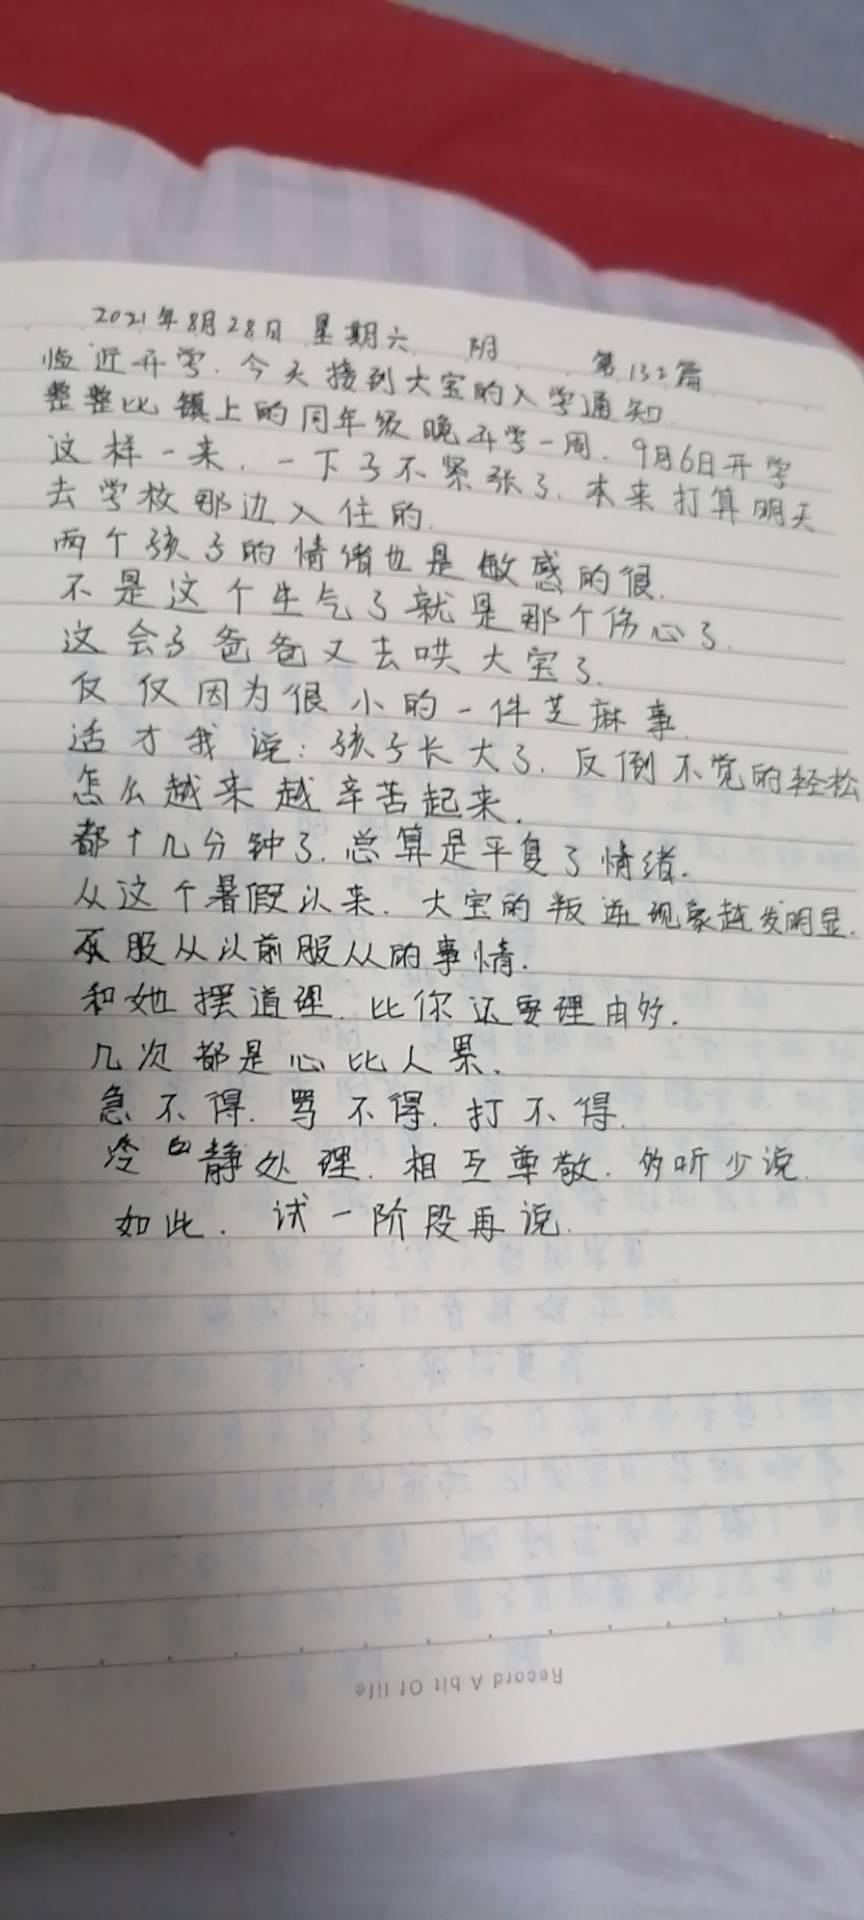 2021年8月28日 星期六 阴 第132篇
临近开学.今天接到大宝的入学通知
整整比镇上的同年级晚开学一周.9月6日开学
这样一来.一下子不紧张了.本来打算明天
去学校那边入住的.
两个孩子的情绪也是敏感的很.
不是这个生气了就是那个伤心了.
这会子爸爸又去哄大宝了.
仅仅因为很小的一件芝麻事.
适才我说:孩子长大了.反倒不觉的轻松
怎么越来越辛苦起来.
都十几分钟了.总算是平复了情绪.
从这个暑假以来.大宝的叛逆现象越发明显.
不服从以前服从的事情.
和她摆道理.比你还要理由多.
几次都是心比人累.
急不得.骂不得.打不得.
冷静处理.相互尊敬.多听少说.
如此.试一阶段再说.
Record A bit Of life